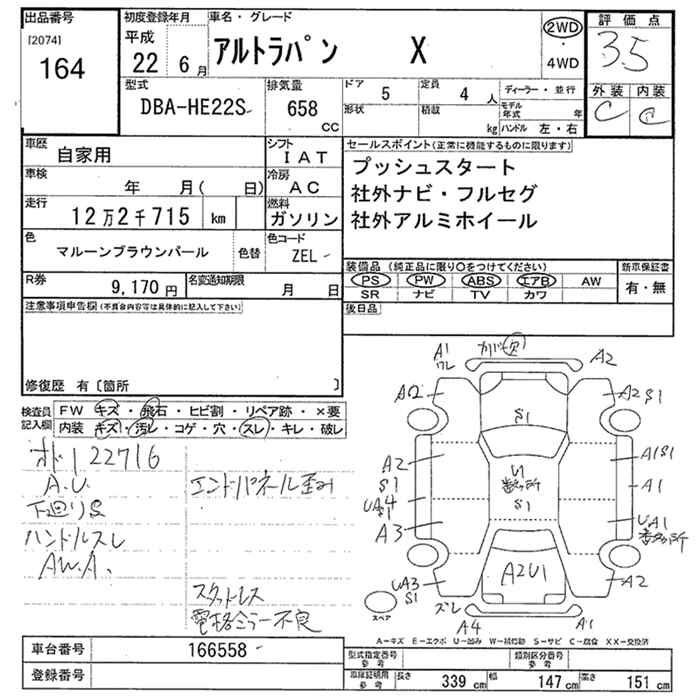 出品番号
[2074]
164
初度登録年月
平成
22 6月
車名・グレード
アルトラパン X
2WD
・
4WD
評価点
3.5
外装 内装
C C
型式
DBA-HE22S
排気量
658 CC
ドア 5
形状
定員 4 人
積載 kg
ディーラー・並行
モデル年式 年
ハンドル 左・右
車歴
自家用
シフト
IAT
車検
年 月( 日)
冷房
AC
走行
12万2千715 km
燃料
ガソリン
色
マルーンブラウンパール
色替
色コード
ZEL
R券
9,170円
名変通知期限
月 日
セールスポイント(正常に機能するものに限ります)
プッシュスタート
社外ナビ・フルセグ
社外アルミホイール
装備品 (純正品に限り○をつけてください)
新車保証書
PS PW ABS エアB AW
有・無
SR ナビ TV カワ
後日品
注意事項申告欄(不具合内容等は具体的に記入して下さい)
修復歴 有〔箇所 〕
検査員記入欄
FW キズ・飛石・ヒビ割・リペア跡・×要
内装 キズ・汚レ・コゲ・穴・スレ・キレ・破レ
オド122716
A.U.
下廻りS
ハンドルスレ
A.W.A.
エンドパネル歪み
スタットレス
電格ミラー不良
A1
ワレ
カバー欠
A2
A2
A2 S1
S1
A2
S1
UA4
S1
A3
U1
多数ヶ所
S1
A1S1
A1
UA1
多数ヶ所
UA3
S1
A2U1
A2
ズレ
A4
A1
スペア
A-キズ E-エクボ U-凹み W-補修跡 S-サビ C-腐食 XX-交換済
車台番号
166558
登録番号
型式指定番号
参考
類別区分番号
参考
車庫証明用
参考
長さ 339 cm
幅 147 cm
高さ 151 cm